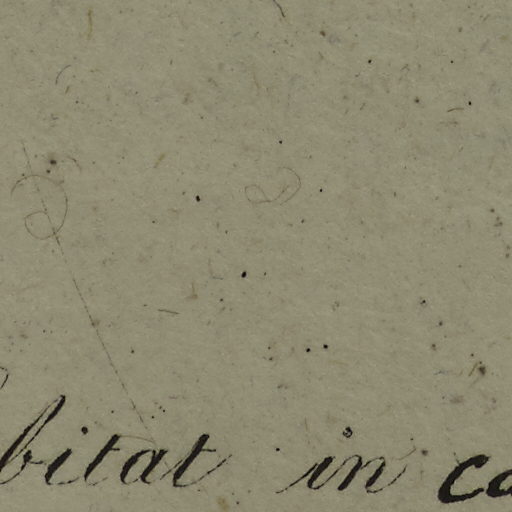 bitat in ca